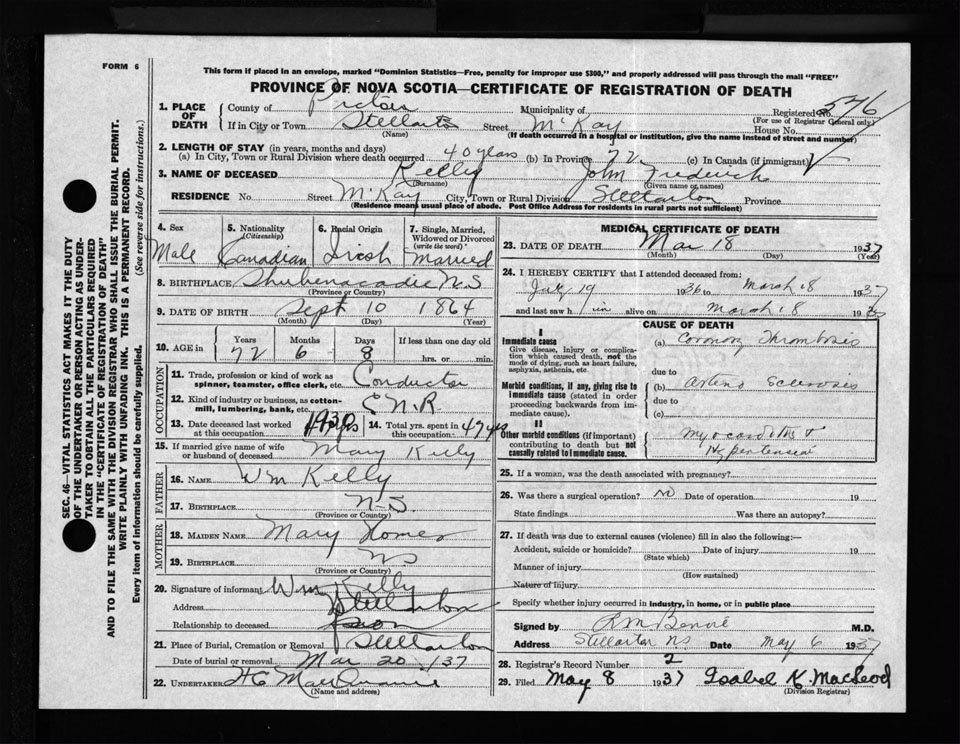 FORM 6
This form if placed in an envelope, marked "Dominion Statistics—Free, penalty for improper use $300," and properly addressed will pass through the mail "FREE"
PROVINCE OF NOVA SCOTIA—CERTIFICATE OF REGISTRATION OF DEATH
1. PLACE OF DEATH County of Pictou Municipality of Registered No. 576
(For use of Registrar General only)
If in City or Town Stellarton Street McKay House No.
(Name) (If death occurred in a hospital or institution, give the name instead of street and number)
2. LENGTH OF STAY (in years, months and days)
(a) In City, Town or Rural Division where death occurred 40 years (b) In Province 72 (c) In Canada (if immigrant)
3. NAME OF DECEASED Kelly John Frederick
(Surname) (Given name or names)
RESIDENCE No Street McKay City, Town or Rural Division Stellarton Province
(Residence means usual place of abode. Post Office Address for residents in rural parts not sufficient)
4. Sex 5. Nationality (Citizenship) 6. Racial Origin 7. Single, Married, Widowed or Divorced (write the word)
Male Canadian Irish Married
8. BIRTHPLACE Shubenacadie N.S
(Province or Country)
9. DATE OF BIRTH Sept 10 1864
(Month) (Day) (Year)
10. AGE in Years Months Days If less than one day old
72 6 8 hrs. or min.
OCCUPATION
11. Trade, profession or kind of work as spinner, teamster, office clerk, etc. Conductor
12. Kind of industry or business, as cotton-mill, lumbering, bank, etc. C N.R.
13. Date deceased last worked at this occupation 1930 14. Total yrs. spent in this occupation 47 yrs
15. If married give name of wife or husband of deceased Mary
FATHER
16. NAME Wm Kelly
17. BIRTHPLACE N-S.
(Province or Country)
MOTHER
18. MAIDEN NAME Mary
19. BIRTHPLACE NS
(Province or Country)
20. Signature of informant Wm Kelly
Address Stellarton
Relationship to deceased son
21. Place of Burial, Cremation or Removal Stellarton
Date of burial or removal Mar 20 /37
22. UNDERTAKER
(Name and address)
MEDICAL CERTIFICATE OF DEATH
23. DATE OF DEATH Mar 18 1937
(Month) (Day) (Year)
24. I HEREBY CERTIFY that I attended deceased from:
19 1936 to March 18 1937
and last saw h im alive on March 18 19
CAUSE OF DEATH
I
Immediate cause
Give disease, injury or complication which caused death, not the mode of dying, such as heart failure, asphyxia, asthenia, etc.
(a) Coronary Thrombosis
due to
Morbid conditions, if any, giving rise to immediate cause (stated in order proceeding backwards from immediate cause).
(b) Arterio Sclerosis
due to
(c)
II
Other morbid conditions (if important) contributing to death but not causally related to immediate cause.
myocarditis +
Hypertension
25. If a woman, was the death associated with pregnancy?
26. Was there a surgical operation? No Date of operation 19
State findings Was there an autopsy?
27. If death was due to external causes (violence) fill in also the following:—
Accident, suicide or homicide? Date of injury 19
(State which)
Manner of injury
(How sustained)
Nature of injury
Specify whether injury occurred in industry, in home, or in public place
Signed by M.D.
Address Stellarton NS Date May 6 1937
28. Registrar's Record Number 2
29. Filed May 8 1937 Isabel K. MacLeod
(Division Registrar)
SEC. 46—VITAL STATISTICS ACT MAKES IT THE DUTY
OF THE UNDERTAKER OR PERSON ACTING AS UNDER-
TAKER TO OBTAIN ALL THE PARTICULARS REQUIRED
IN THE "CERTIFICATE OF REGISTRATION OF DEATH"
AND TO FILE THE SAME WITH THE DIVISION REGISTRAR WHO SHALL ISSUE THE BURIAL PERMIT.
WRITE PLAINLY WITH UNFADING INK. THIS IS A PERMANENT RECORD.
Every item of information should be carefully supplied. (See reverse side for instructions.)